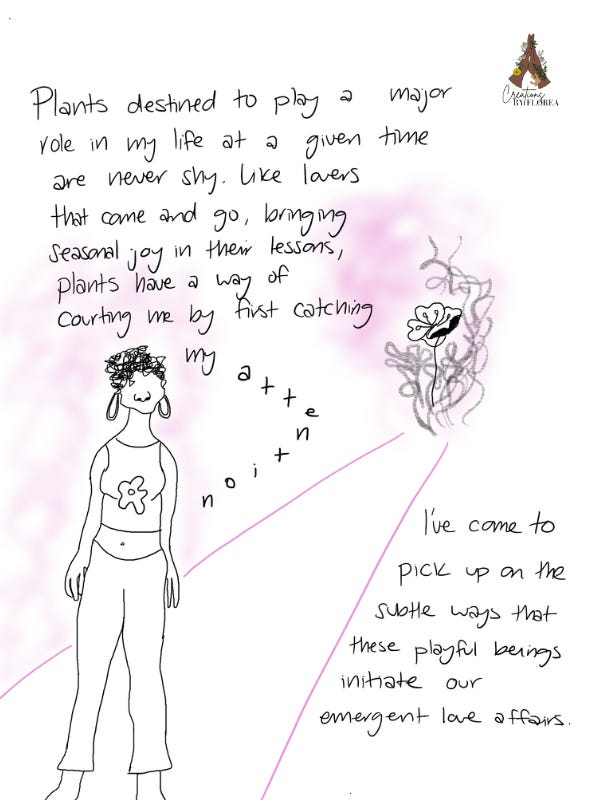 Creations
BY FLOREA
Plants destined to play a major
role in my life at a given time
are never shy. Like lovers
that come and go, bringing
seasonal joy in their lessons,
plants have a way of
courting me by first catching
my attention
I've come to
pick up on the
subtle ways that
these playful beings
initiate our
emergent love affairs.